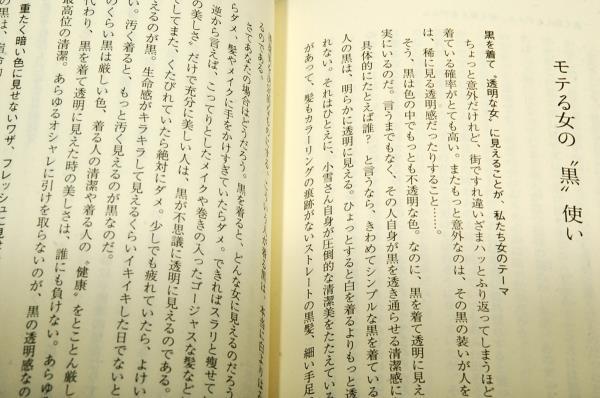 モテる女の〝黒〟使い
黒を着て〝透明な女〟に見えることが、私たち女のテーマ
ちょっと意外だけれど、街ですれ違いざまハッとふり返ってしまうほど
着ている確率がとても高い。またもっと意外なのは、その黒の装いが人を
は、稀に見る透明感だったりすること……。
そう、黒は色の中でもっとも不透明な色。なのに、黒を着て透明に見え
実にいるのだ。言うまでもなく、その人自身が黒を透き通らせる清潔感に
具体的にたとえば誰？　と言うなら、きわめてシンプルな黒を着ている
人の黒は、明らかに透明に見える。ひょっとすると白を着るよりもっと透
れない。それはひとえに、小雪さん自身が圧倒的な清潔美をたたえている
があって、髪もカラーリングの痕跡がないストレートの黒髪、細い手足
のである。
さてあなたの場合はどうだろう。黒を着ると、どんな女に見えるのだろう
らダメ、髪やメイクに手をかけすぎていたらダメ。できればスラリと痩せて
逆から言えば、こってりとしたメイクや巻きの入ったゴージャスな髪など
の美しさ〟だけで充分に美しい人は、黒が不思議に透明に見えるのである。
そしてまた、くたびれていたら絶対にダメ。少しでも疲れていたら、よけい
えるのが黒。生命感がキラキラして見えるくらいイキイキした日でないと
い。汚く着ると、もっと汚く見えるのが黒なのだ。
のくらい黒は厳しい色、着る人の清潔や着る人の〝健康〟をとことん厳し
代わり、黒を着て透明に見えた時の美しさは、誰にも負けない。あらゆる
最高位の清潔。あらゆるオシャレに引けを取らないのが、黒の透明感なの
重たく暗い色に見せないワザ、フレッシュに見せ